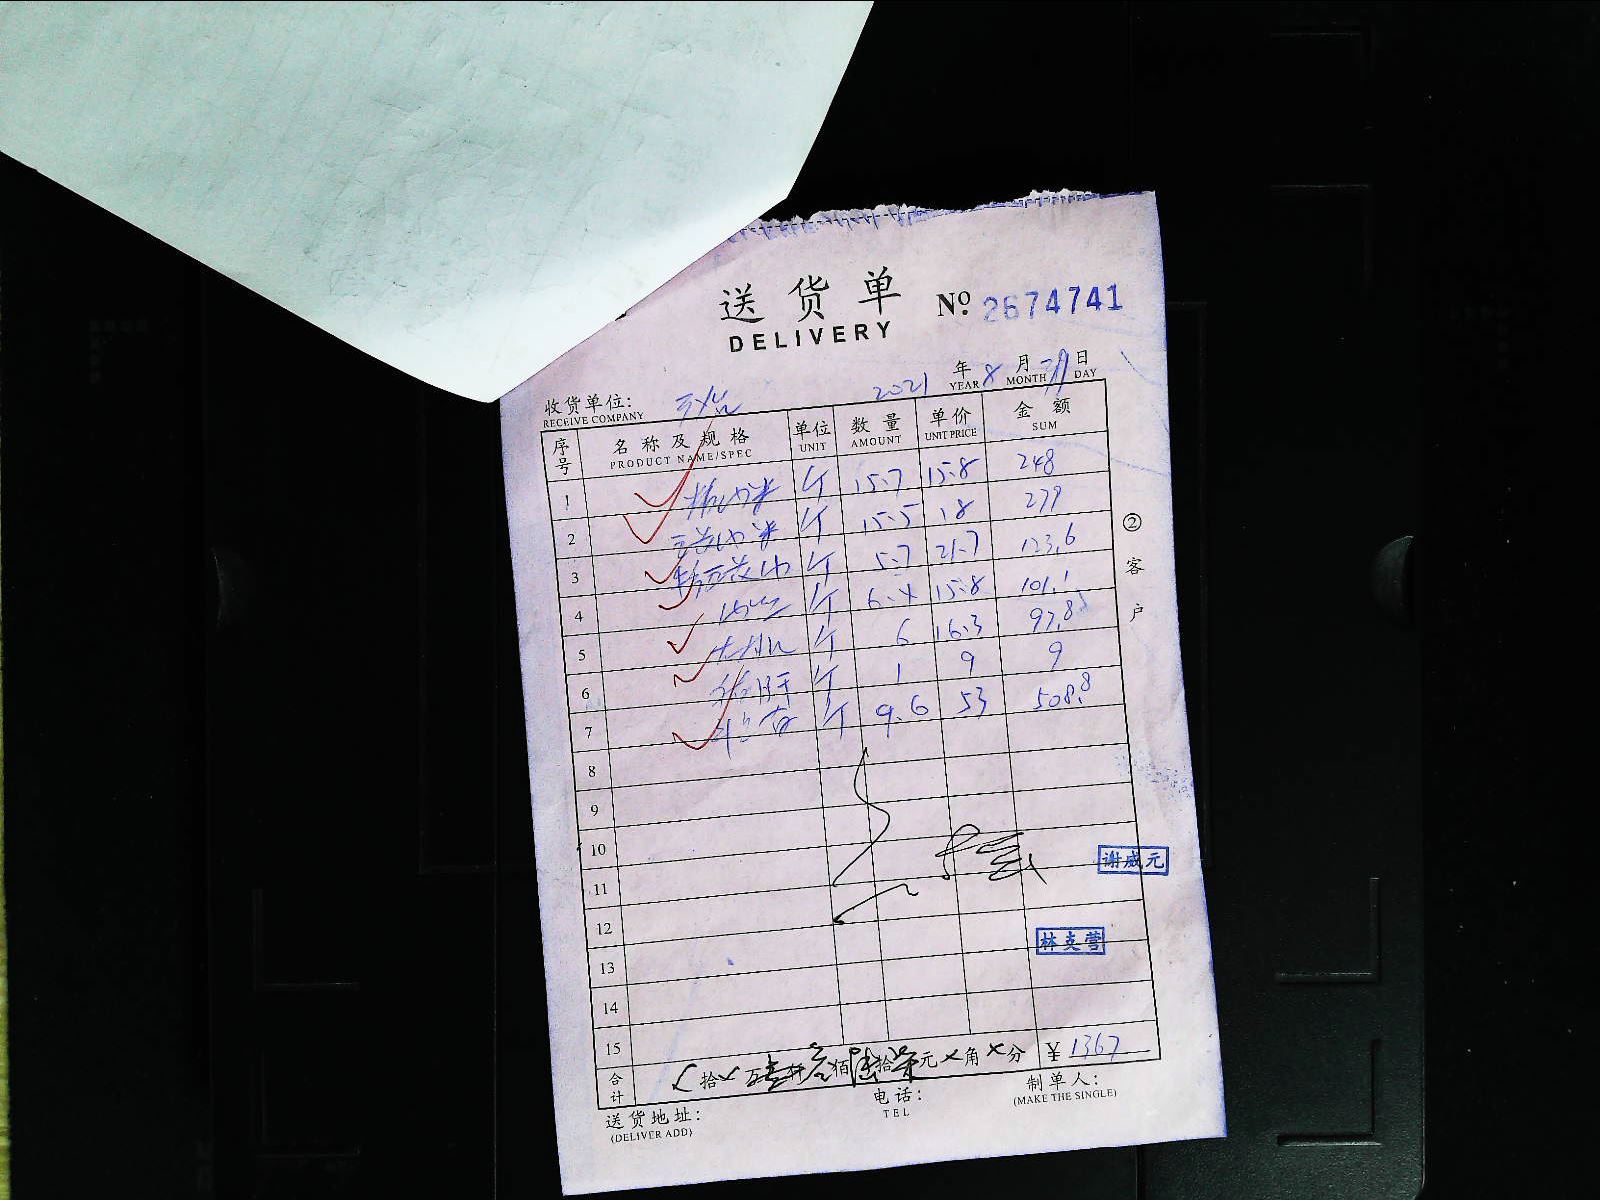 送货单 № 2674741
DELIVERY
2021 年 8 月 日
YEAR MONTH DAY
收货单位:
RECEIVE COMPANY
序号 名称及规格 单位 数量 单价 金额
PRODUCT NAME/SPEC UNIT AMOUNT UNIT PRICE SUM
1 个 15.7 15.8 248
2 个 15.5 18 279
3 个 5.7 21.7 123.6
4 个 6.4 15.8 101.1
5 个 6 16.3 97.8
6 个 1 9 9
7 个 9.6 53 508.8
8
9
10
11
12
13
14
15
② 客户
谢威元
林支营
合计 拾 万 佰 拾 元 角 分 ¥ 1367
送货地址: 电话: 制单人:
(DELIVER ADD) TEL (MAKE THE SINGLE)